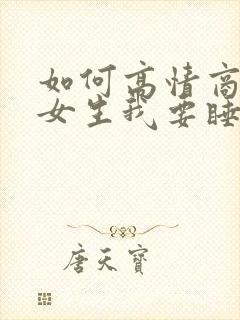 如何高情商
女生我要睡
唐天寶